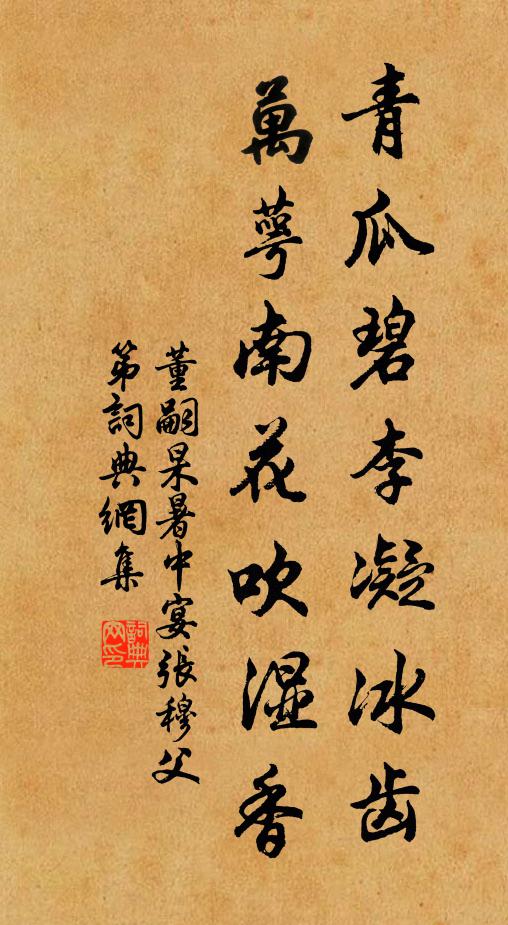 青瓜碧李凝冰齿
萬萼南花吹湿香
董嗣杲暑中宴張穆父
第詞典網集
詞典网印